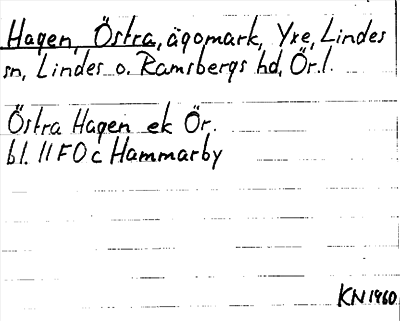 Hagen, Östra, ägomark, Yxe, Lindes
sn, Lindes o. Ramsbergs hd, Ör.l.
Östra Hagen ek Ör.
bl. 11F0c Hammarby
KN 1960